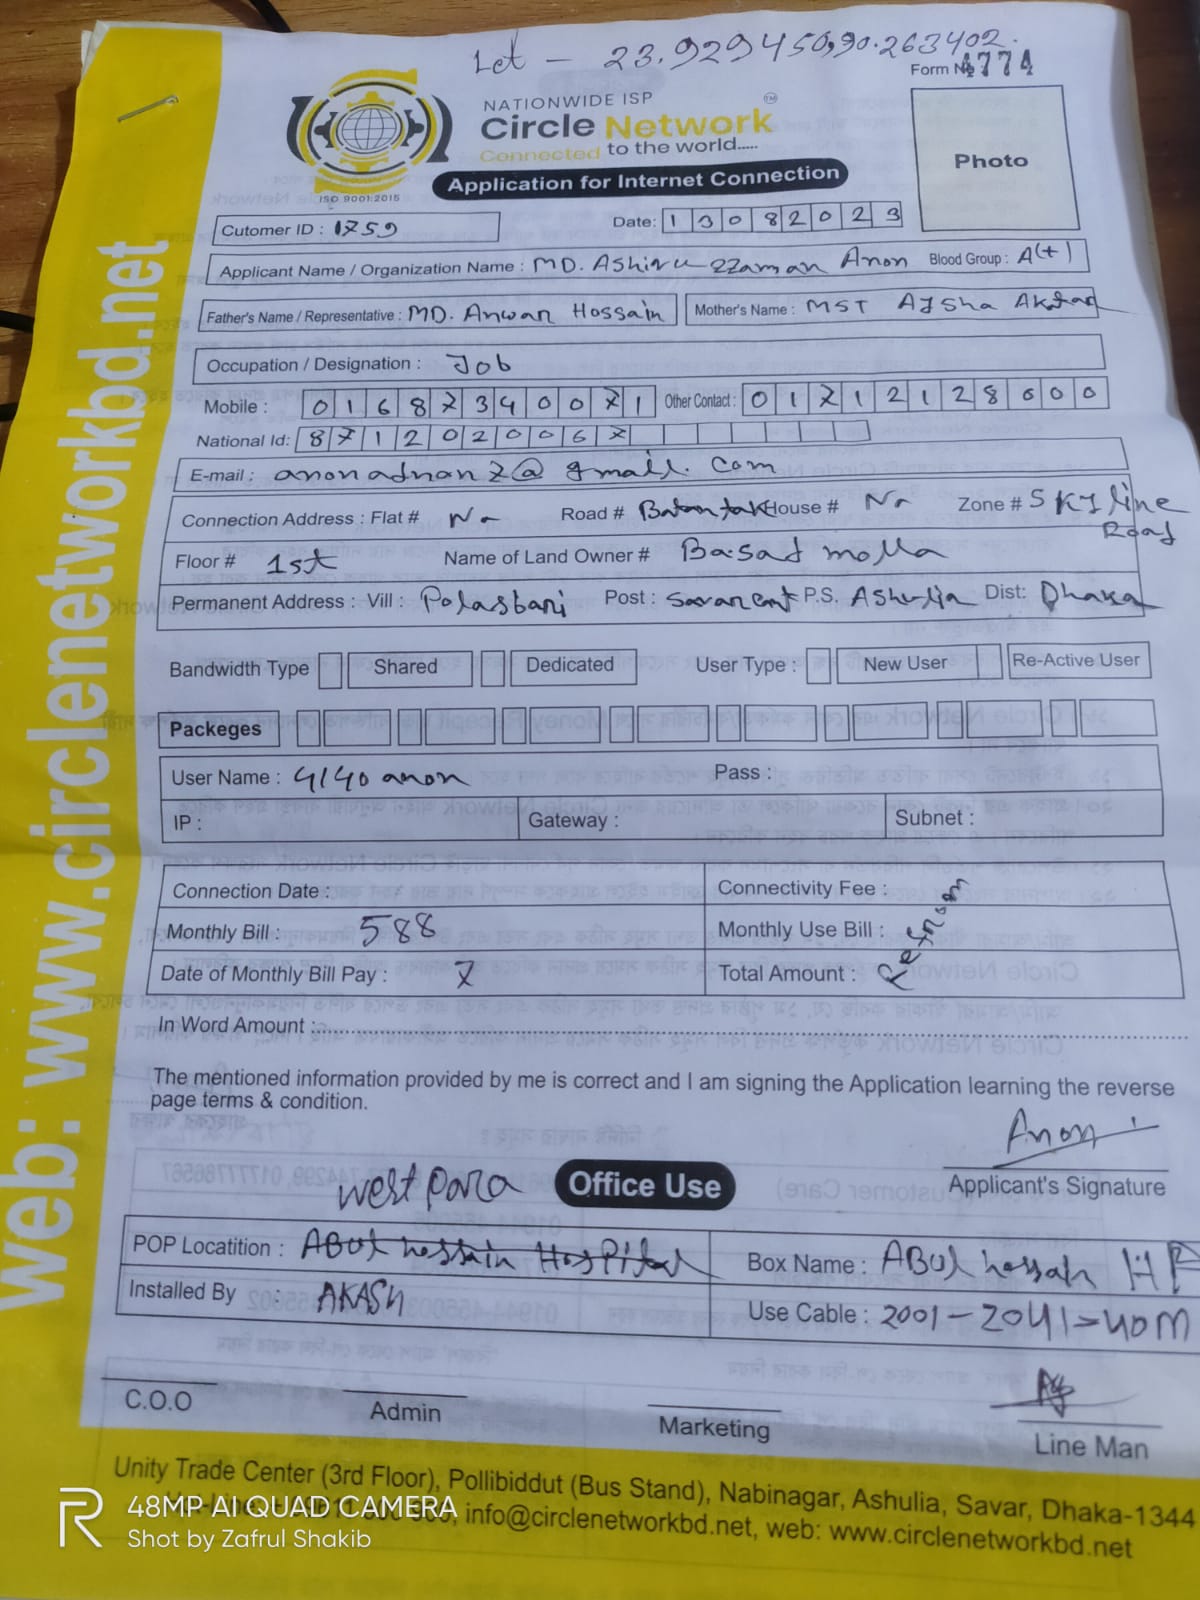 Let - 23.929450,90.263402.
Form No 4774
NATIONWIDE ISP
Circle Network
Connected to the world.....
ISO 9001:2015
Application for Internet Connection
Photo
Cutomer ID : 1759
Date: 13082023
Applicant Name / Organization Name : MD. Ashiruzzaman Anon Blood Group : A(+)
Father's Name / Representative : MD. Anwar Hossain Mother's Name : MST Aysha Aktar
Occupation / Designation : Job
Mobile : 01687340071 Other Contact : 01712128600
National Id: 8712020067
E-mail : anonadnan7@gmail.com
Connection Address : Flat # No Road # House # No Zone # Skyline Road
Floor # 1st Name of Land Owner # Basad molla
Permanent Address : Vill : Polasbari Post : P.S. Ashulia Dist: Dhaka
Bandwidth Type Shared Dedicated User Type : New User Re-Active User
Packeges
User Name : 4140anon Pass :
IP : Gateway : Subnet :
Connection Date : Connectivity Fee :
Monthly Bill : 588 Monthly Use Bill :
Date of Monthly Bill Pay : 7 Total Amount :
In Word Amount :
The mentioned information provided by me is correct and I am signing the Application learning the reverse
page terms & condition.
Anon
Applicant's Signature
west para Office Use
POP Locatition : ABUL hossain Hospital Box Name : ABUL hossain HP
Installed By : AKASH Use Cable : 2001-2041>40M
C.O.O Admin Marketing Line Man
Unity Trade Center (3rd Floor), Pollibiddut (Bus Stand), Nabinagar, Ashulia, Savar, Dhaka-1344
info@circlenetworkbd.net, web: www.circlenetworkbd.net
web: www.circlenetworkbd.net
48MP AI QUAD CAMERA
Shot by Zafrul Shakib